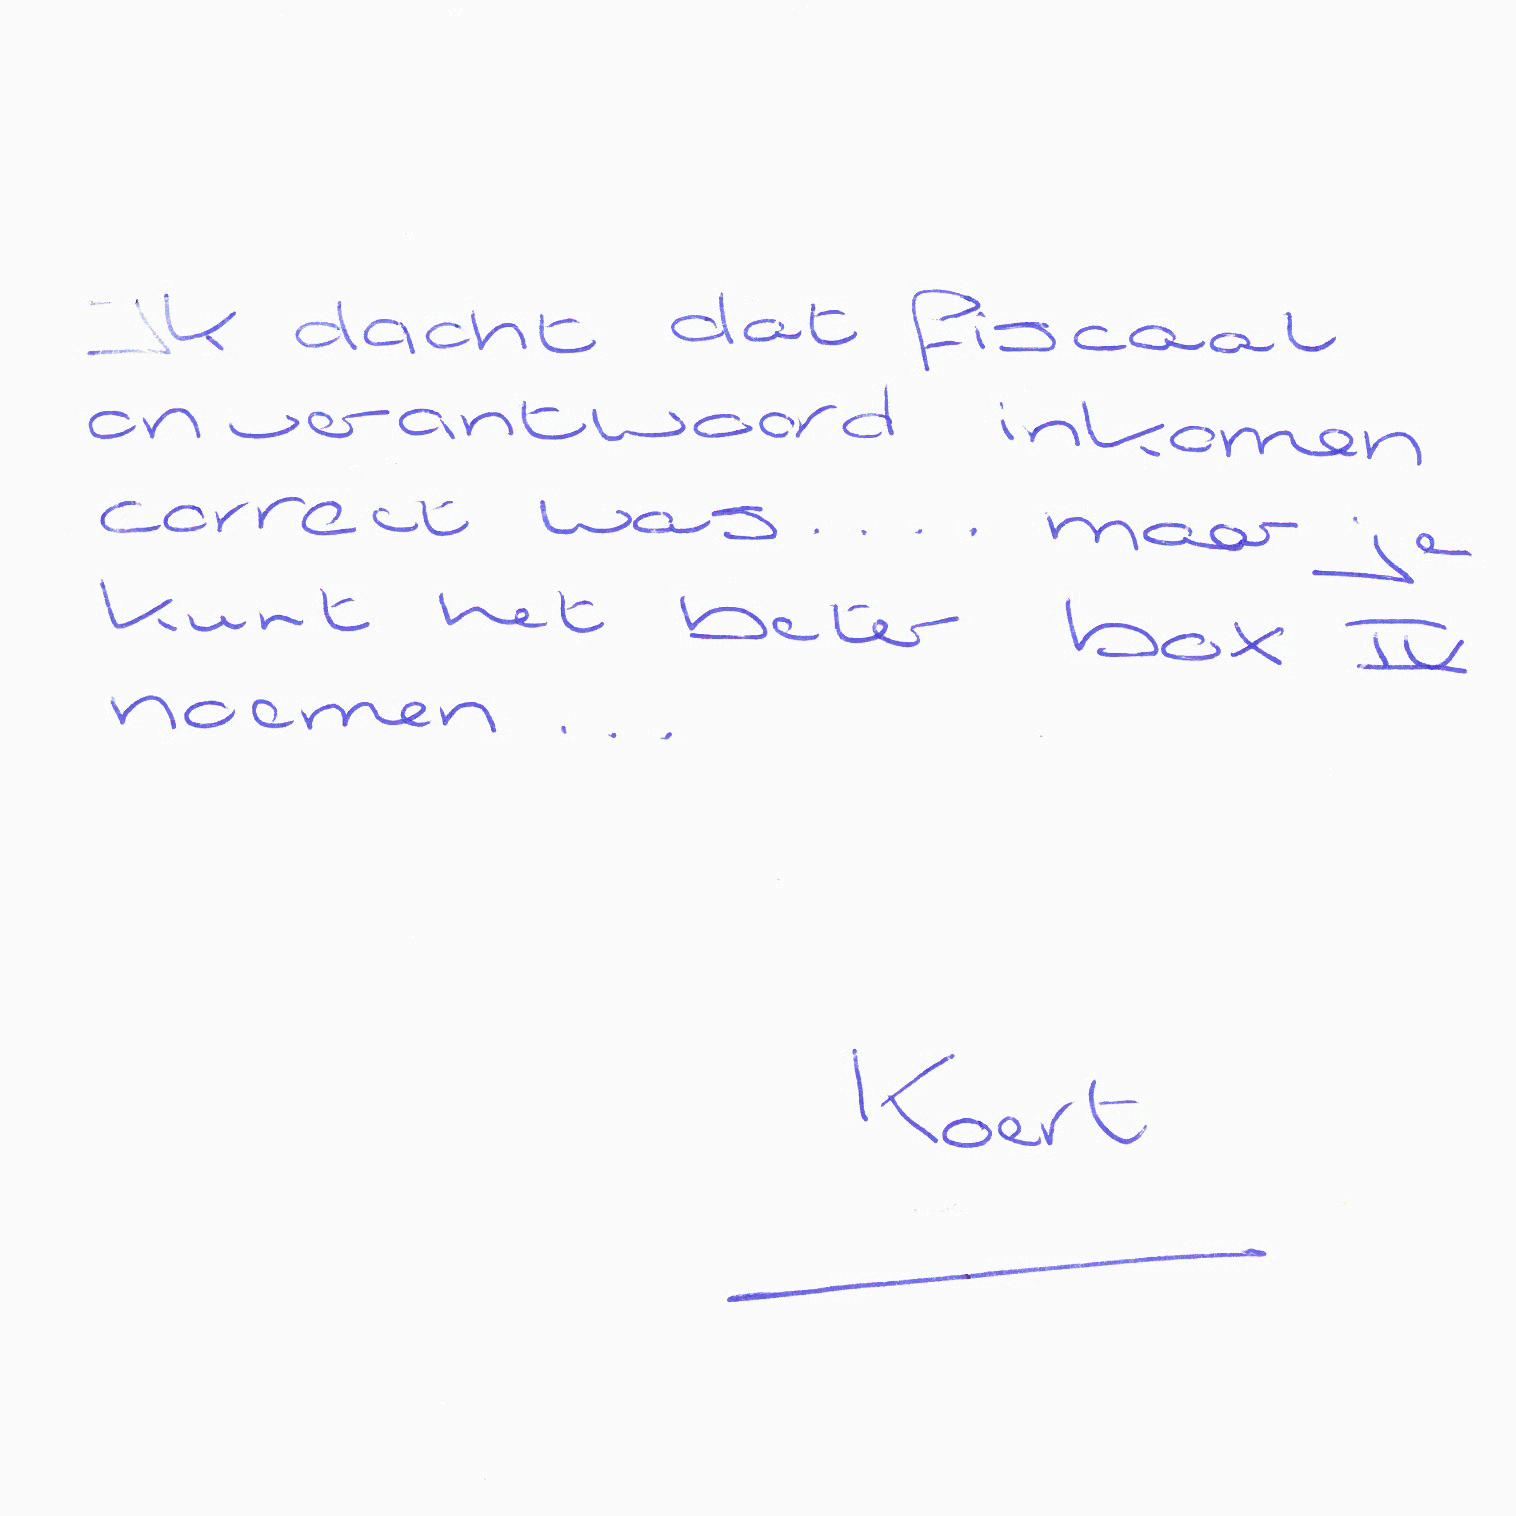 Ik dacht dat fiscaal
onverantwoord inkomen
correct was.... maar je
kunt het beter box IV
noemen...
Koert